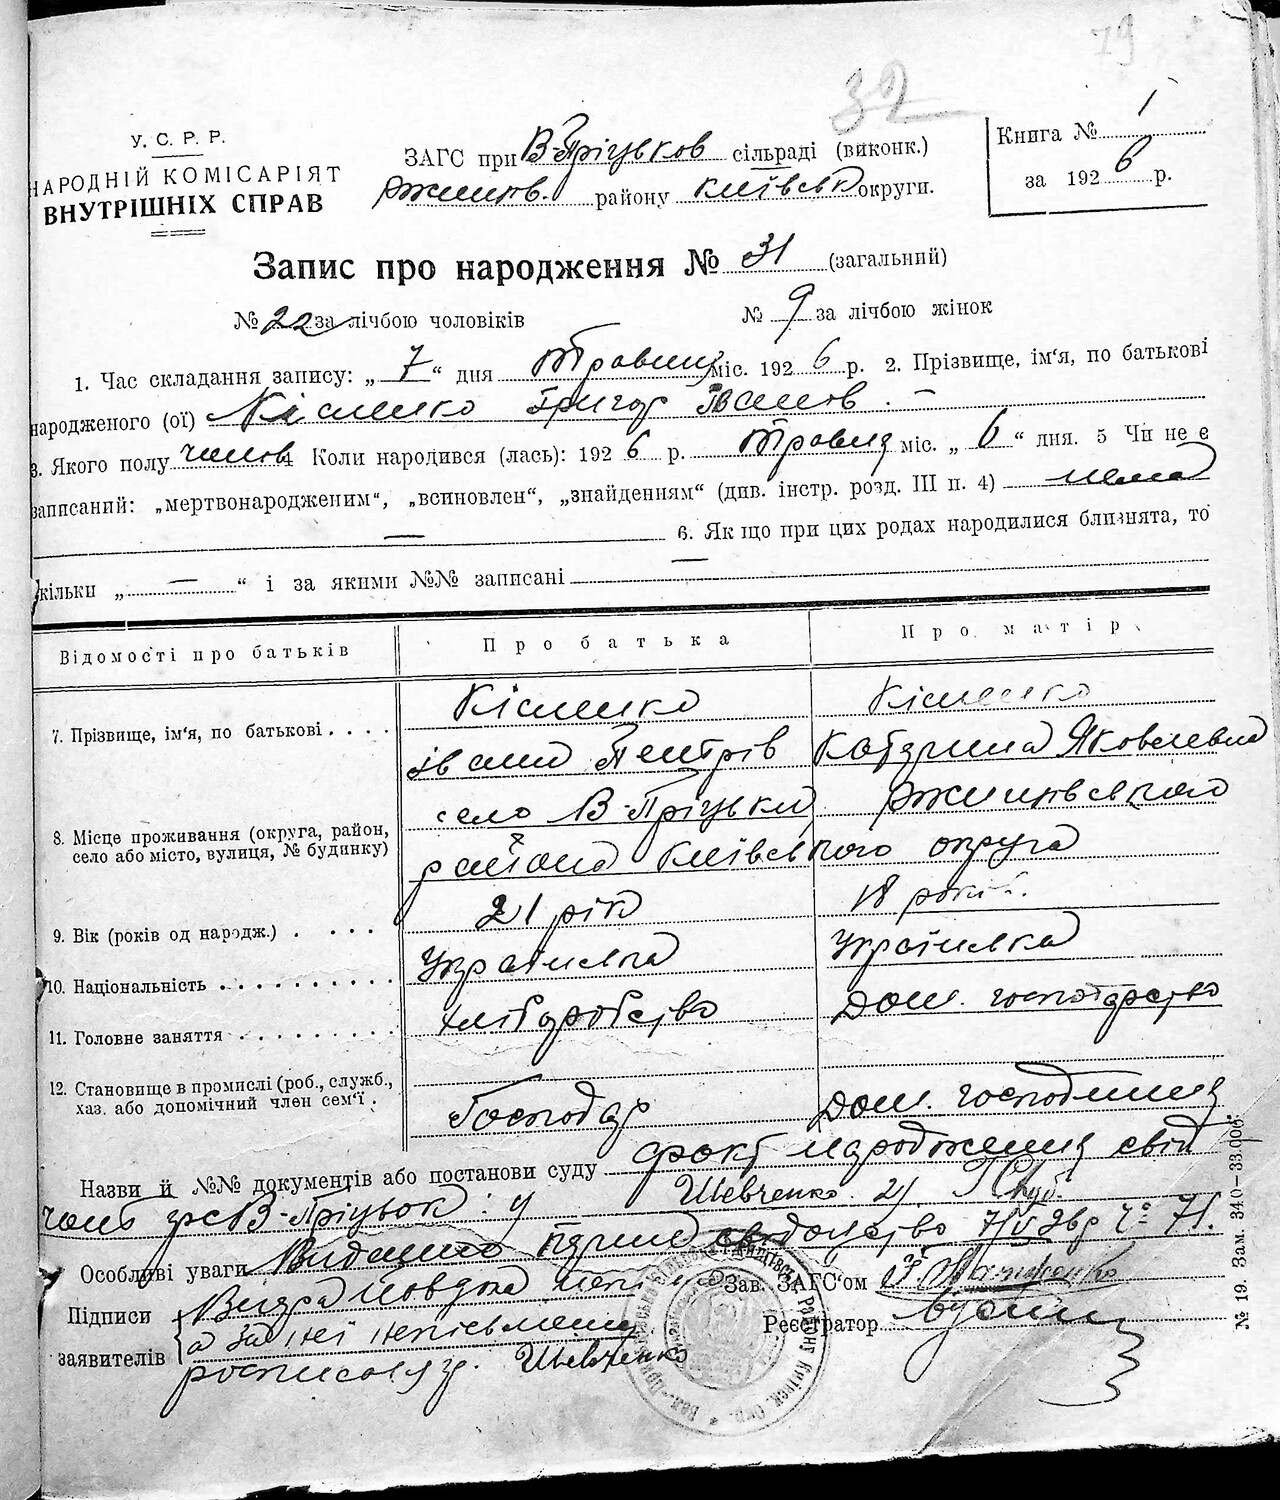 79
32
У. С. Р. Р.
НАРОДНІЙ КОМІСАРІЯТ
ВНУТРІШНІХ СПРАВ
ЗАГС при В-Пріцьков сільраді (виконк.)
Ржищів. району Київськ округи.
Книга № 1
за 1926 р.
Запис про народження № 31 (загальний)
№ 22 за лічбою чоловіків № 9 за лічбою жінок
1. Час складання запису: „ 7 “ дня Травня міс. 1926 р. 2. Прізвище, ім‘я, по батькові
народженого (ої) Кісленко Григор Іванов. –
3. Якого полу чолов 4 Коли народився (лась): 1926 р. Травня міс. „ 6 “ дня. 5 Чи не є
записаний: „мертвонародженим“, „всиновлен“, „знайденням“ (див. інстр. розд. III п. 4) нема
— 6. Як що при цих родах народилися близнята, то
скільки „ — “ і за якими №№ записані —
Відомості про батьків Про батька Про матір
7. Прізвище, ім‘я, по батькові Кісленко Кісленко
Іван Петрів Катерина Яковлевна
8. Місце проживання (округа, район, село В-Пріцьки Ржищівського
село або місто, вулиця, № будинку) района Київського округа
9. Вік (років од народж.) 21 рік 18 років.
10. Національність Українка Українка
11. Головне заняття хліборобство дом. господарство
12. Становище в промислі (роб., служб.,
хаз. або допомічний член сем‘ї. Господар дом. господиня
Назви й №№ документів або постанови суду факт народження свід
чать В-Пріцьок: Шевченко. 2)
Особливі уваги Видано свідоцтво 7/V 26 р № 71.
Підписи Зав. ЗАГС‘ом
заявителів а за неї неписьменну Реєстратор
росписался Шевченко
№ 19. Зам. 340—33.000.